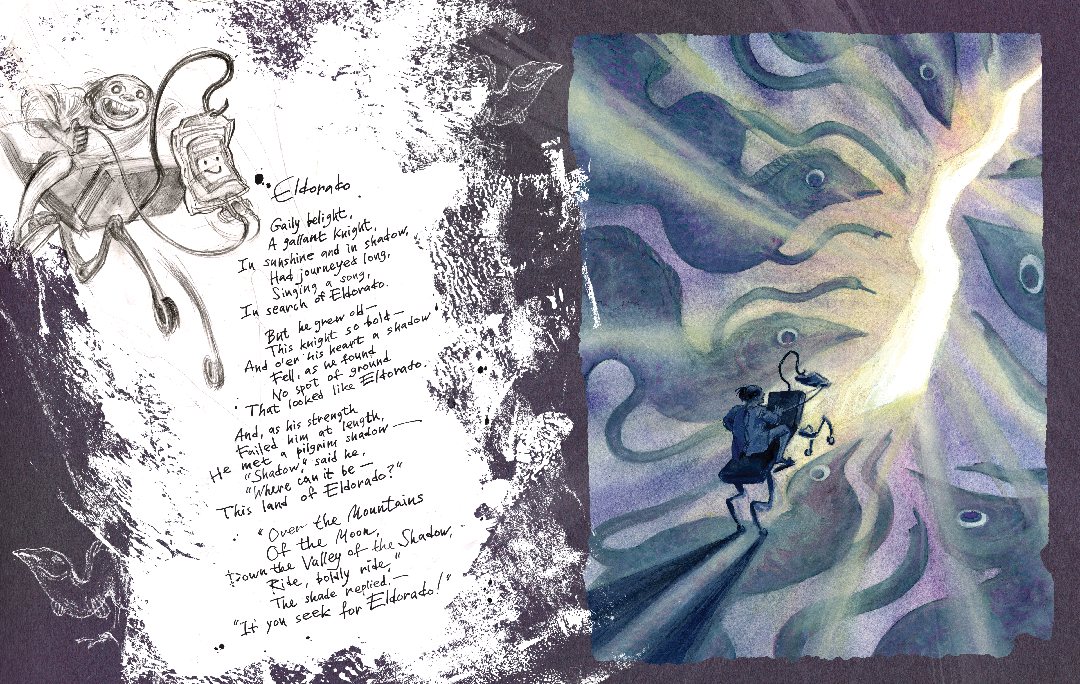 Eldorado
Gaily belight,
A gallant knight,
In sunshine and in shadow,
Had journeyed long,
Singing a song,
In search of Eldorado.
But he grew old—
This knight so bold—
And o'er his heart a shadow
Fell, as he found
No spot of ground
That looked like Eldorado.
And, as his strength
Failed him at length,
He met a pilgrim shadow—
"Shadow," said he,
"Where can it be—
This land of Eldorado?"
"Over the Mountains
Of the Moon,
Down the Valley of the Shadow,
Ride, boldly ride,"
The shade replied.—
"If you seek for Eldorado!"